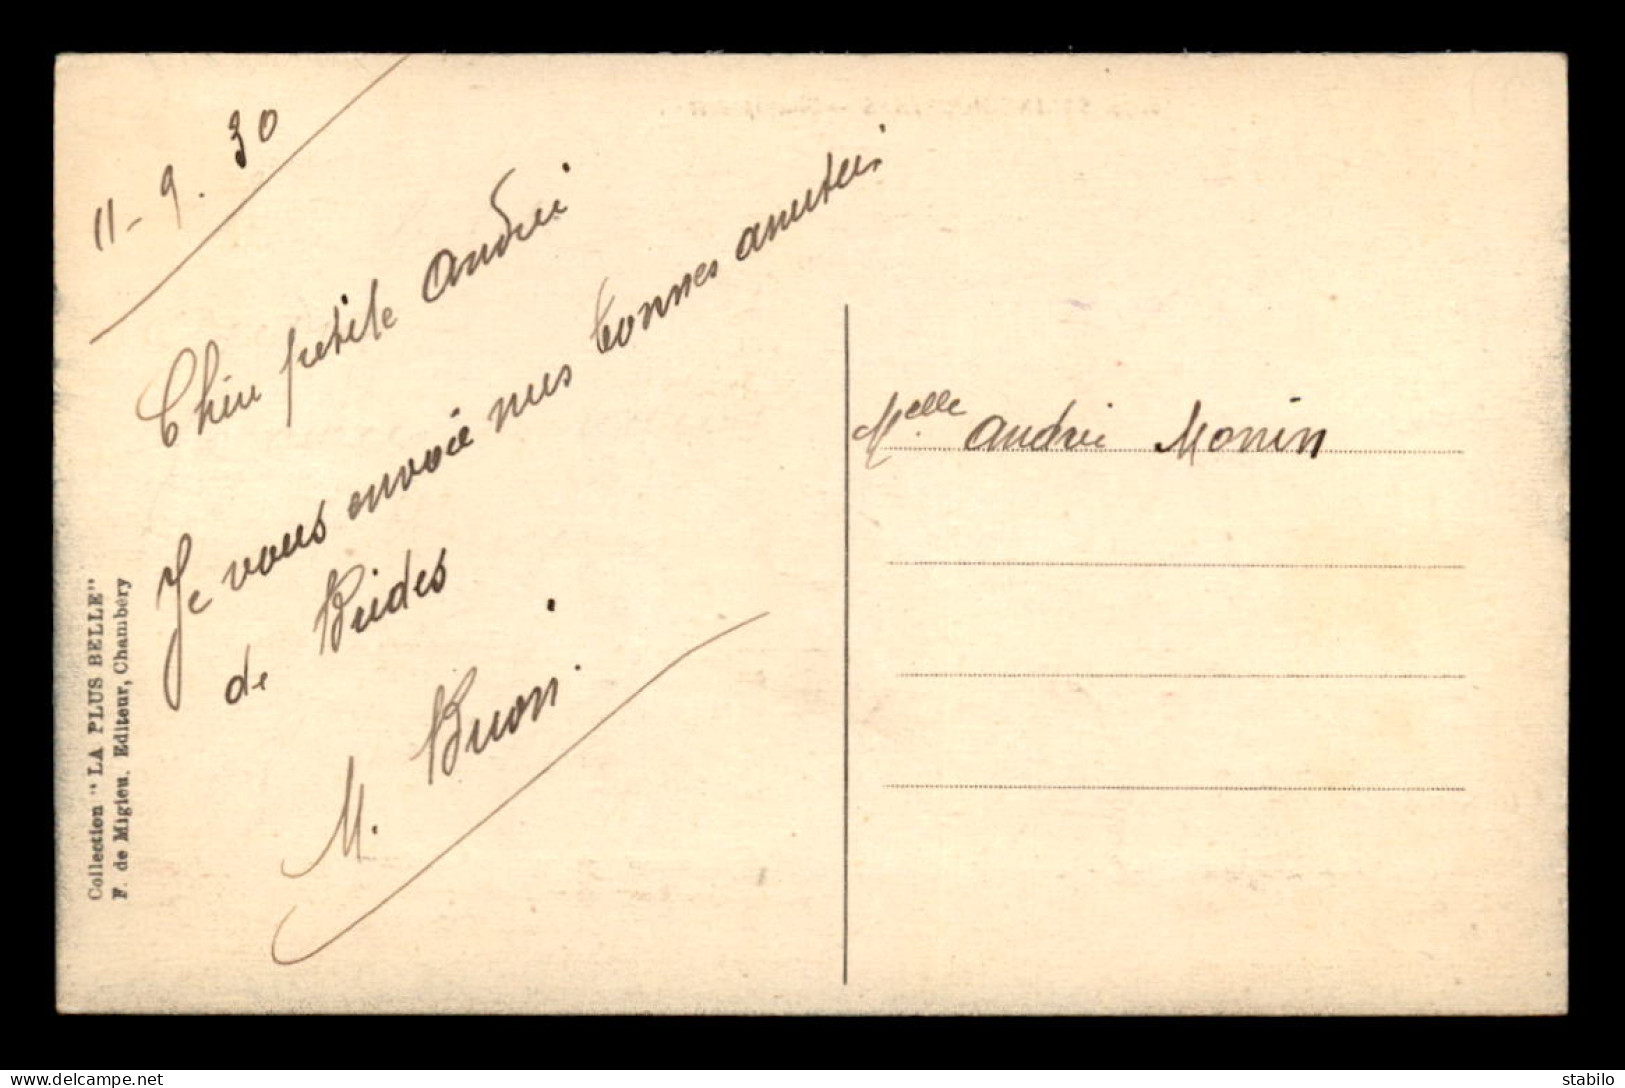 11-9.30
Chère petite Andrée
Je vous envoie mes bonnes amitiés
de Brides
M.
Melle Andrée Monin
Collection "LA PLUS BELLE"
F. de Migieu, Editeur, Chambéry
www.delcampe.net
stabilo